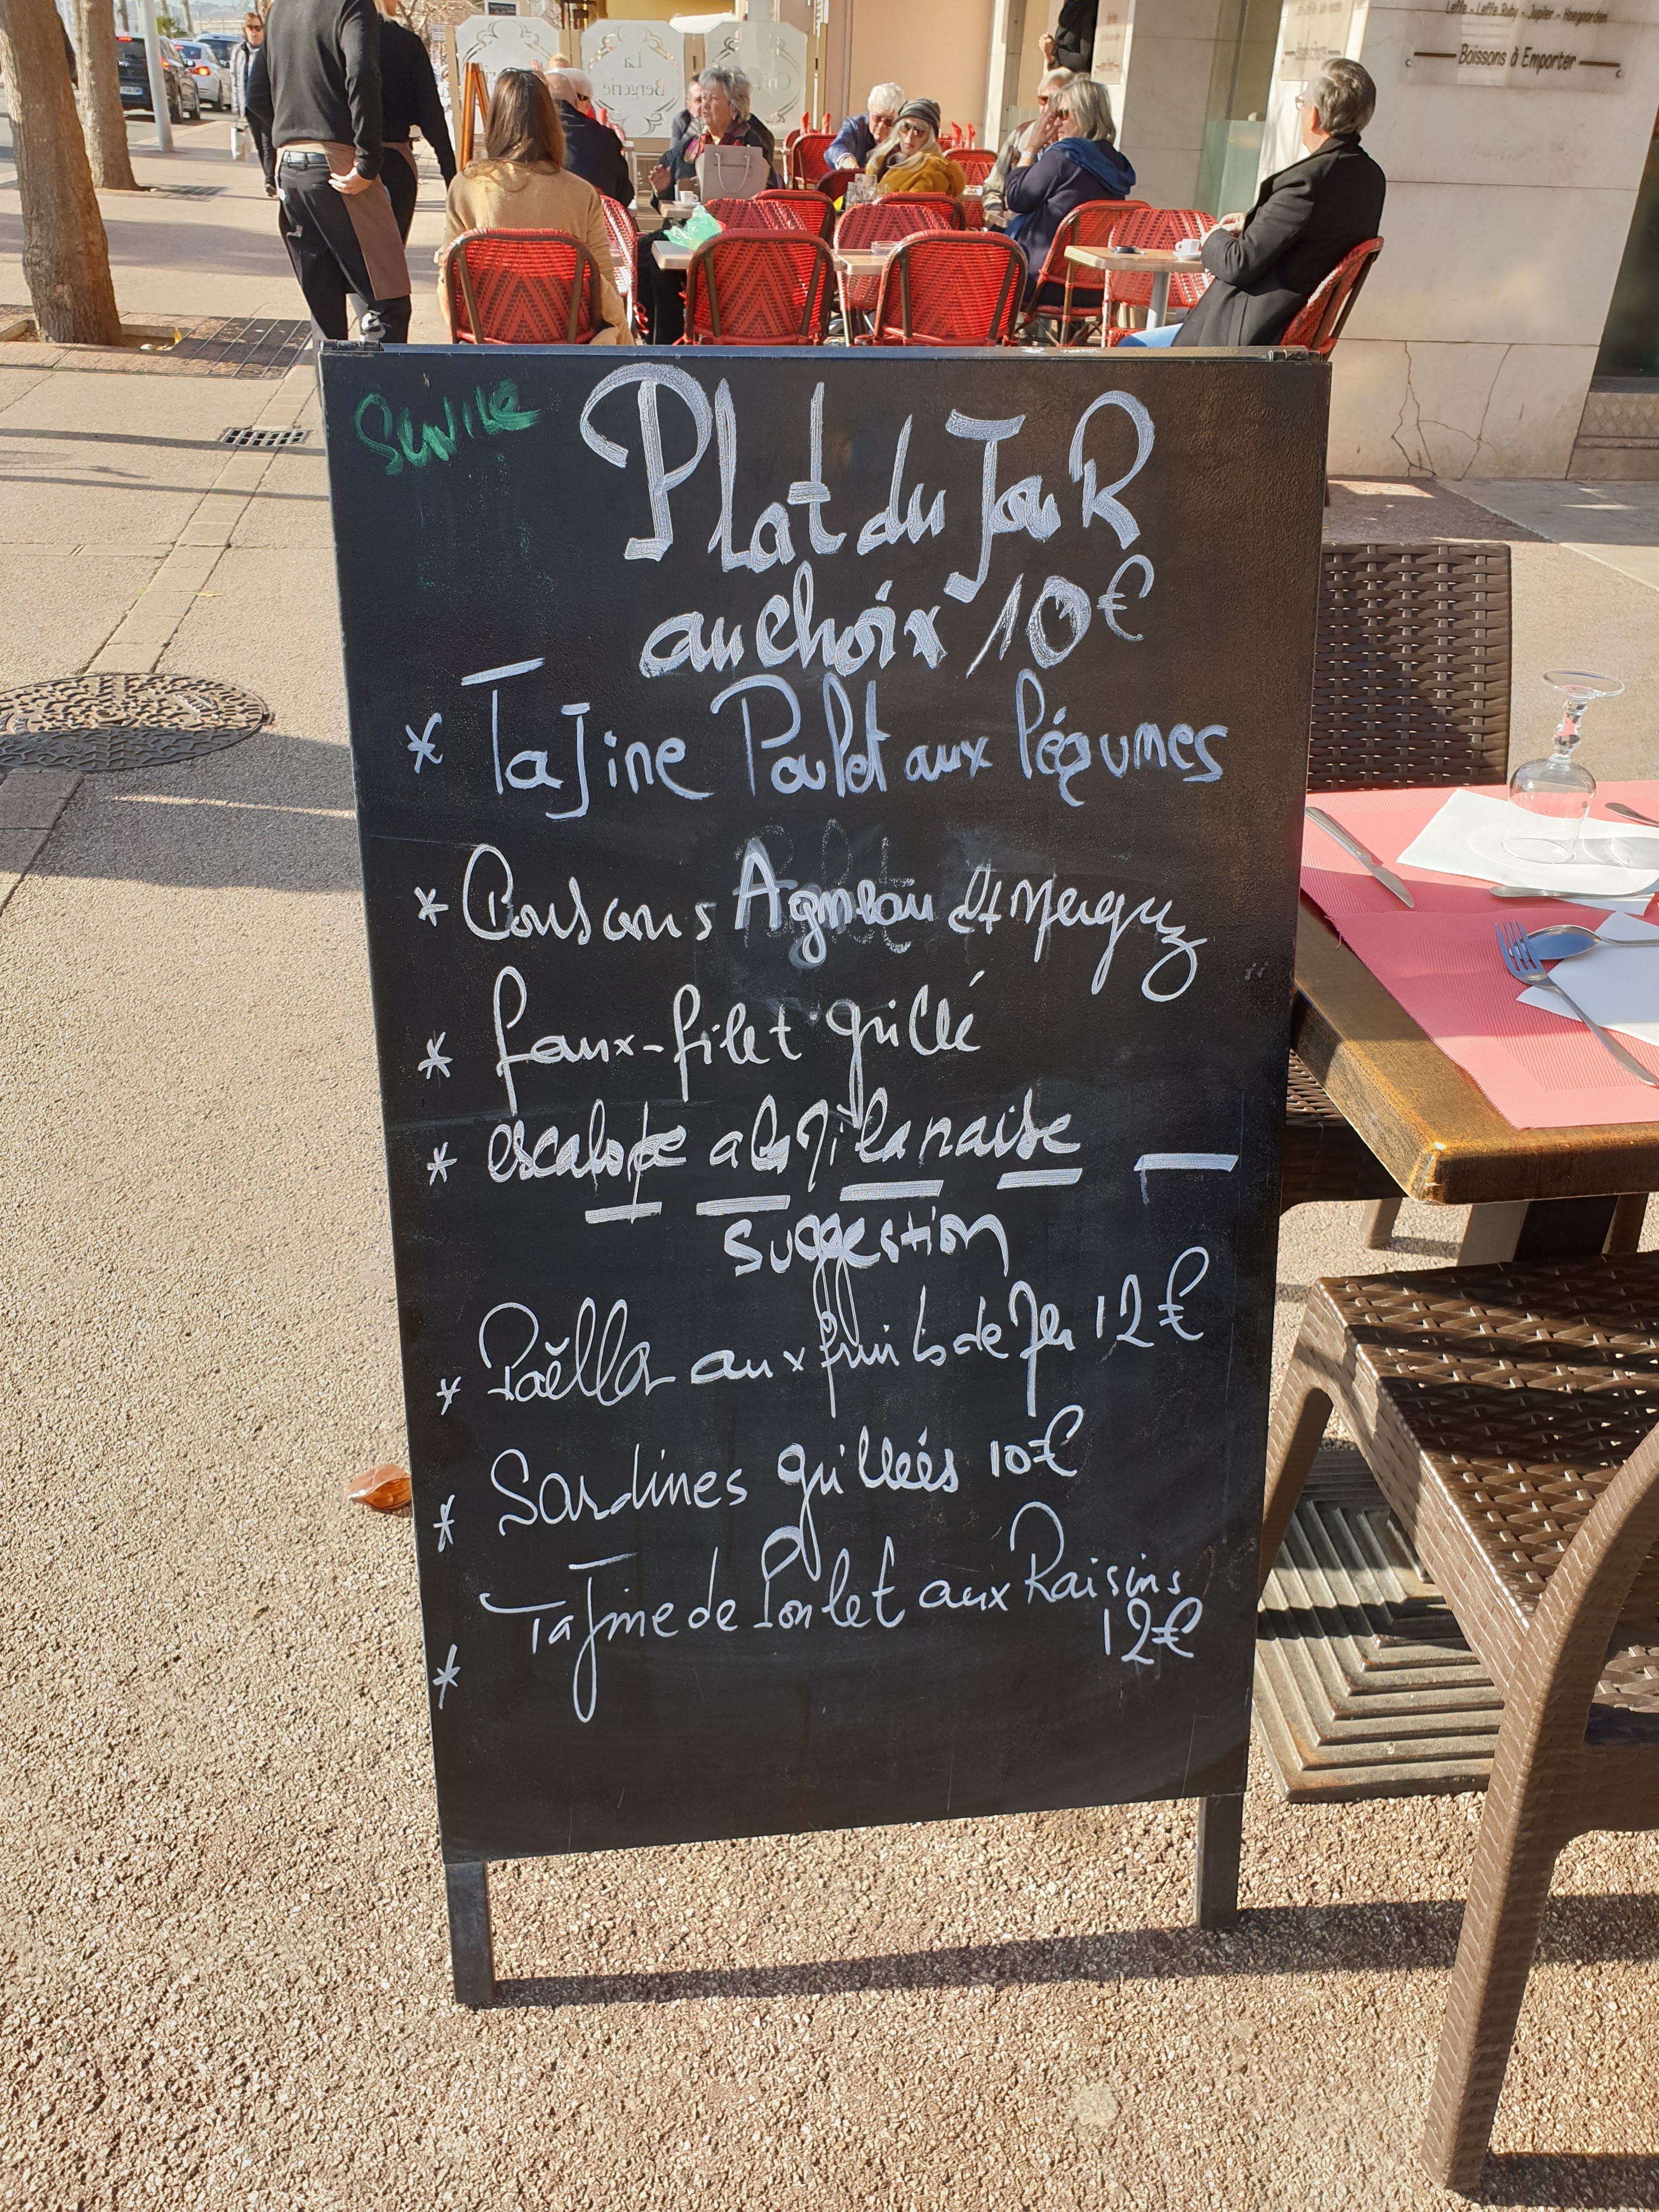 Leffe - Leffe Ruby - Jupiler - Hoegaarden
Boissons à Emporter
La
Bergerie
Plat du JouR
au choix 10€
* Tajine Poulet aux légumes
* Couscous Agneau et Merguez
* faux-filet grillé
* escalope a la Milanaise
Suggestion
* Paëlla aux fruits de Mer 12€
* Sardines grillées 10€
* Tajine de Poulet aux Raisins
12€